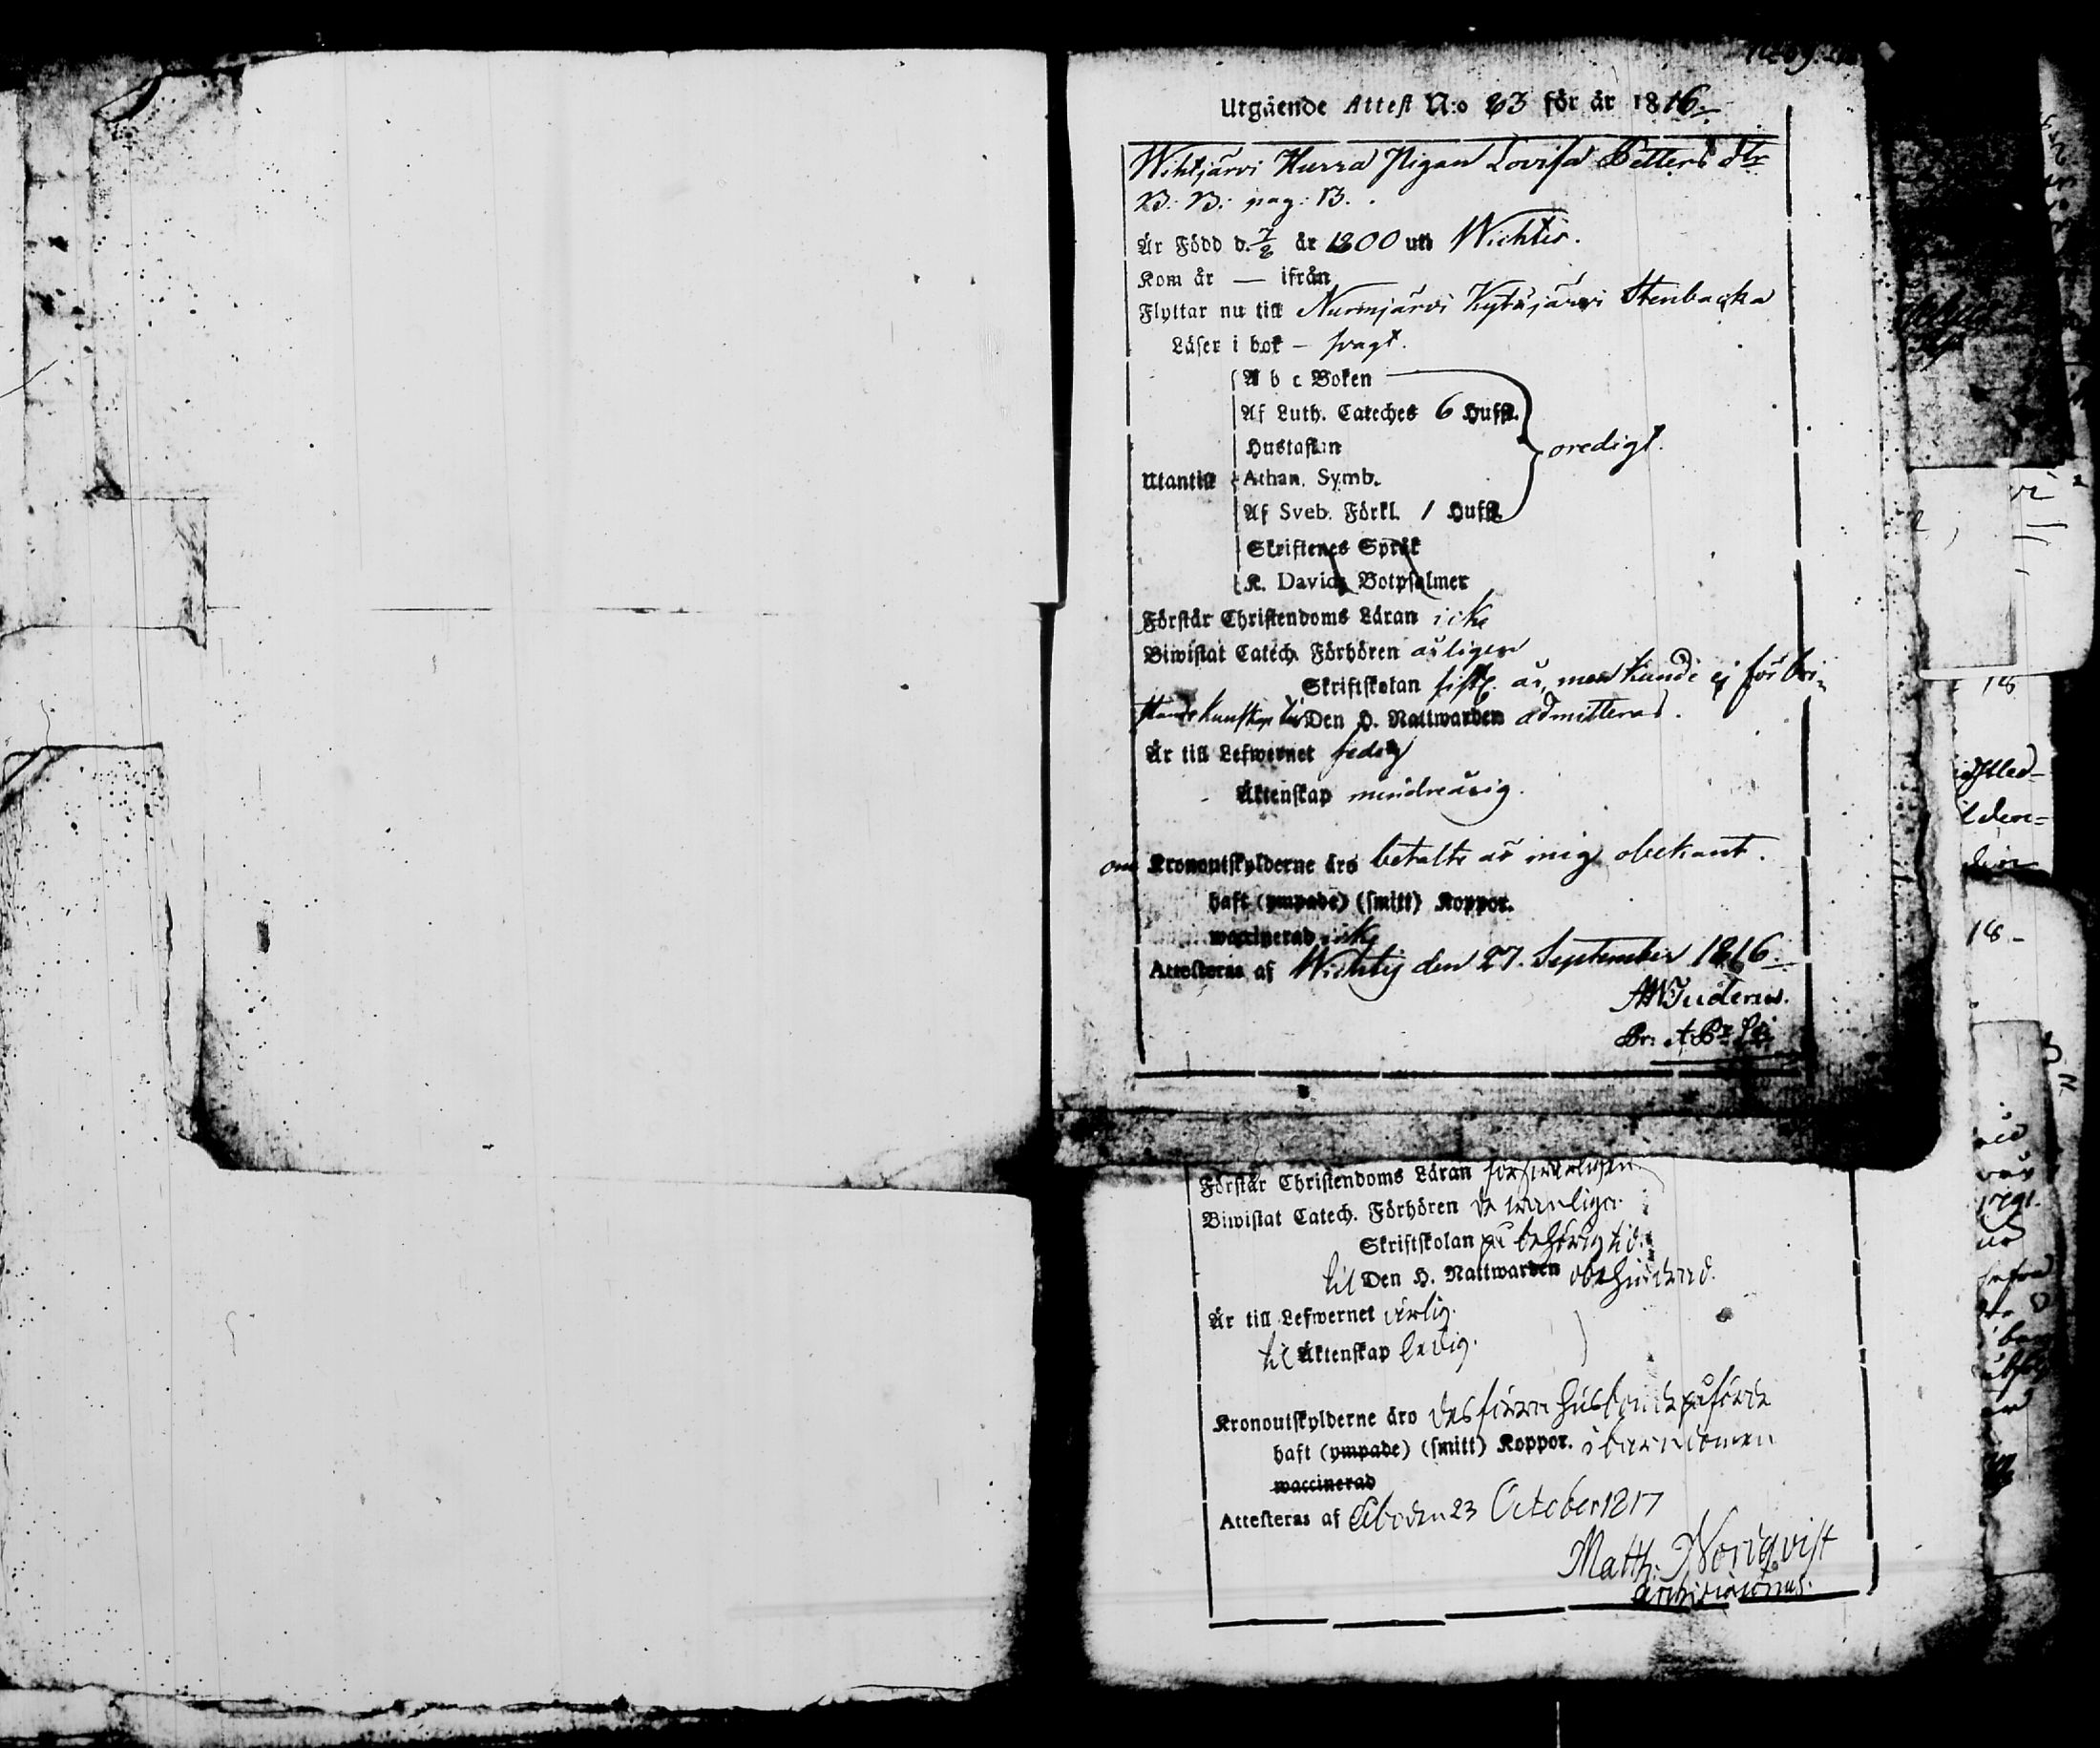 Utgående Attest N:o 63 för år 1816.
Wihtjärvi Hurra Pigan Lovisa Petters dtr
B: B: pag: 13.
Är Född d. 7/2 år 1800 uti Wichtis.
Kom år — ifrån
Flyttar nu till Nurmjärvi Kytäjärvi Stenbacka
Läser i bok – svagt.
A b c Boken
Af Luth. Cateches 6 Hufst.
Hustaflan
oredigt.
Utantill Athan. Symb.
Af Sveb. Förkl. 1 Hufst.
Skriftenes Språk
K. Davids Botpsalmer
Förstår Christendoms Läran icke
Biwistat Catech. Förhören årligen
Skriftskolan sistl. år, men kunde ej för bri-
stande kunskap till Den H. Nattwarden admitteras.
Är till Lefwernet sedig
Äktenskap minderårig.
om Kronoutskylderne äro betalte är mig obekant.
haft (ympade) (smitt) Koppor.
waccinerad icke
Attesteras af Wichtis den 27. September 1816.
Förstår Christendoms Läran försvarligen
Biwistat Catech. Förhören de wanliga
Skriftskolan på behörig tid.
til Den H. Nattwarden obehindrad.
Är till Lefwernet ärlig.
til Äktenskap ledig.
Kronoutskylderne äro des förra husbonde påförde
haft (ympade) (smitt) Koppor. i barndomen
waccinerad
Attesteras af Åbo den 23 October 1817
Matth: Nordqvist